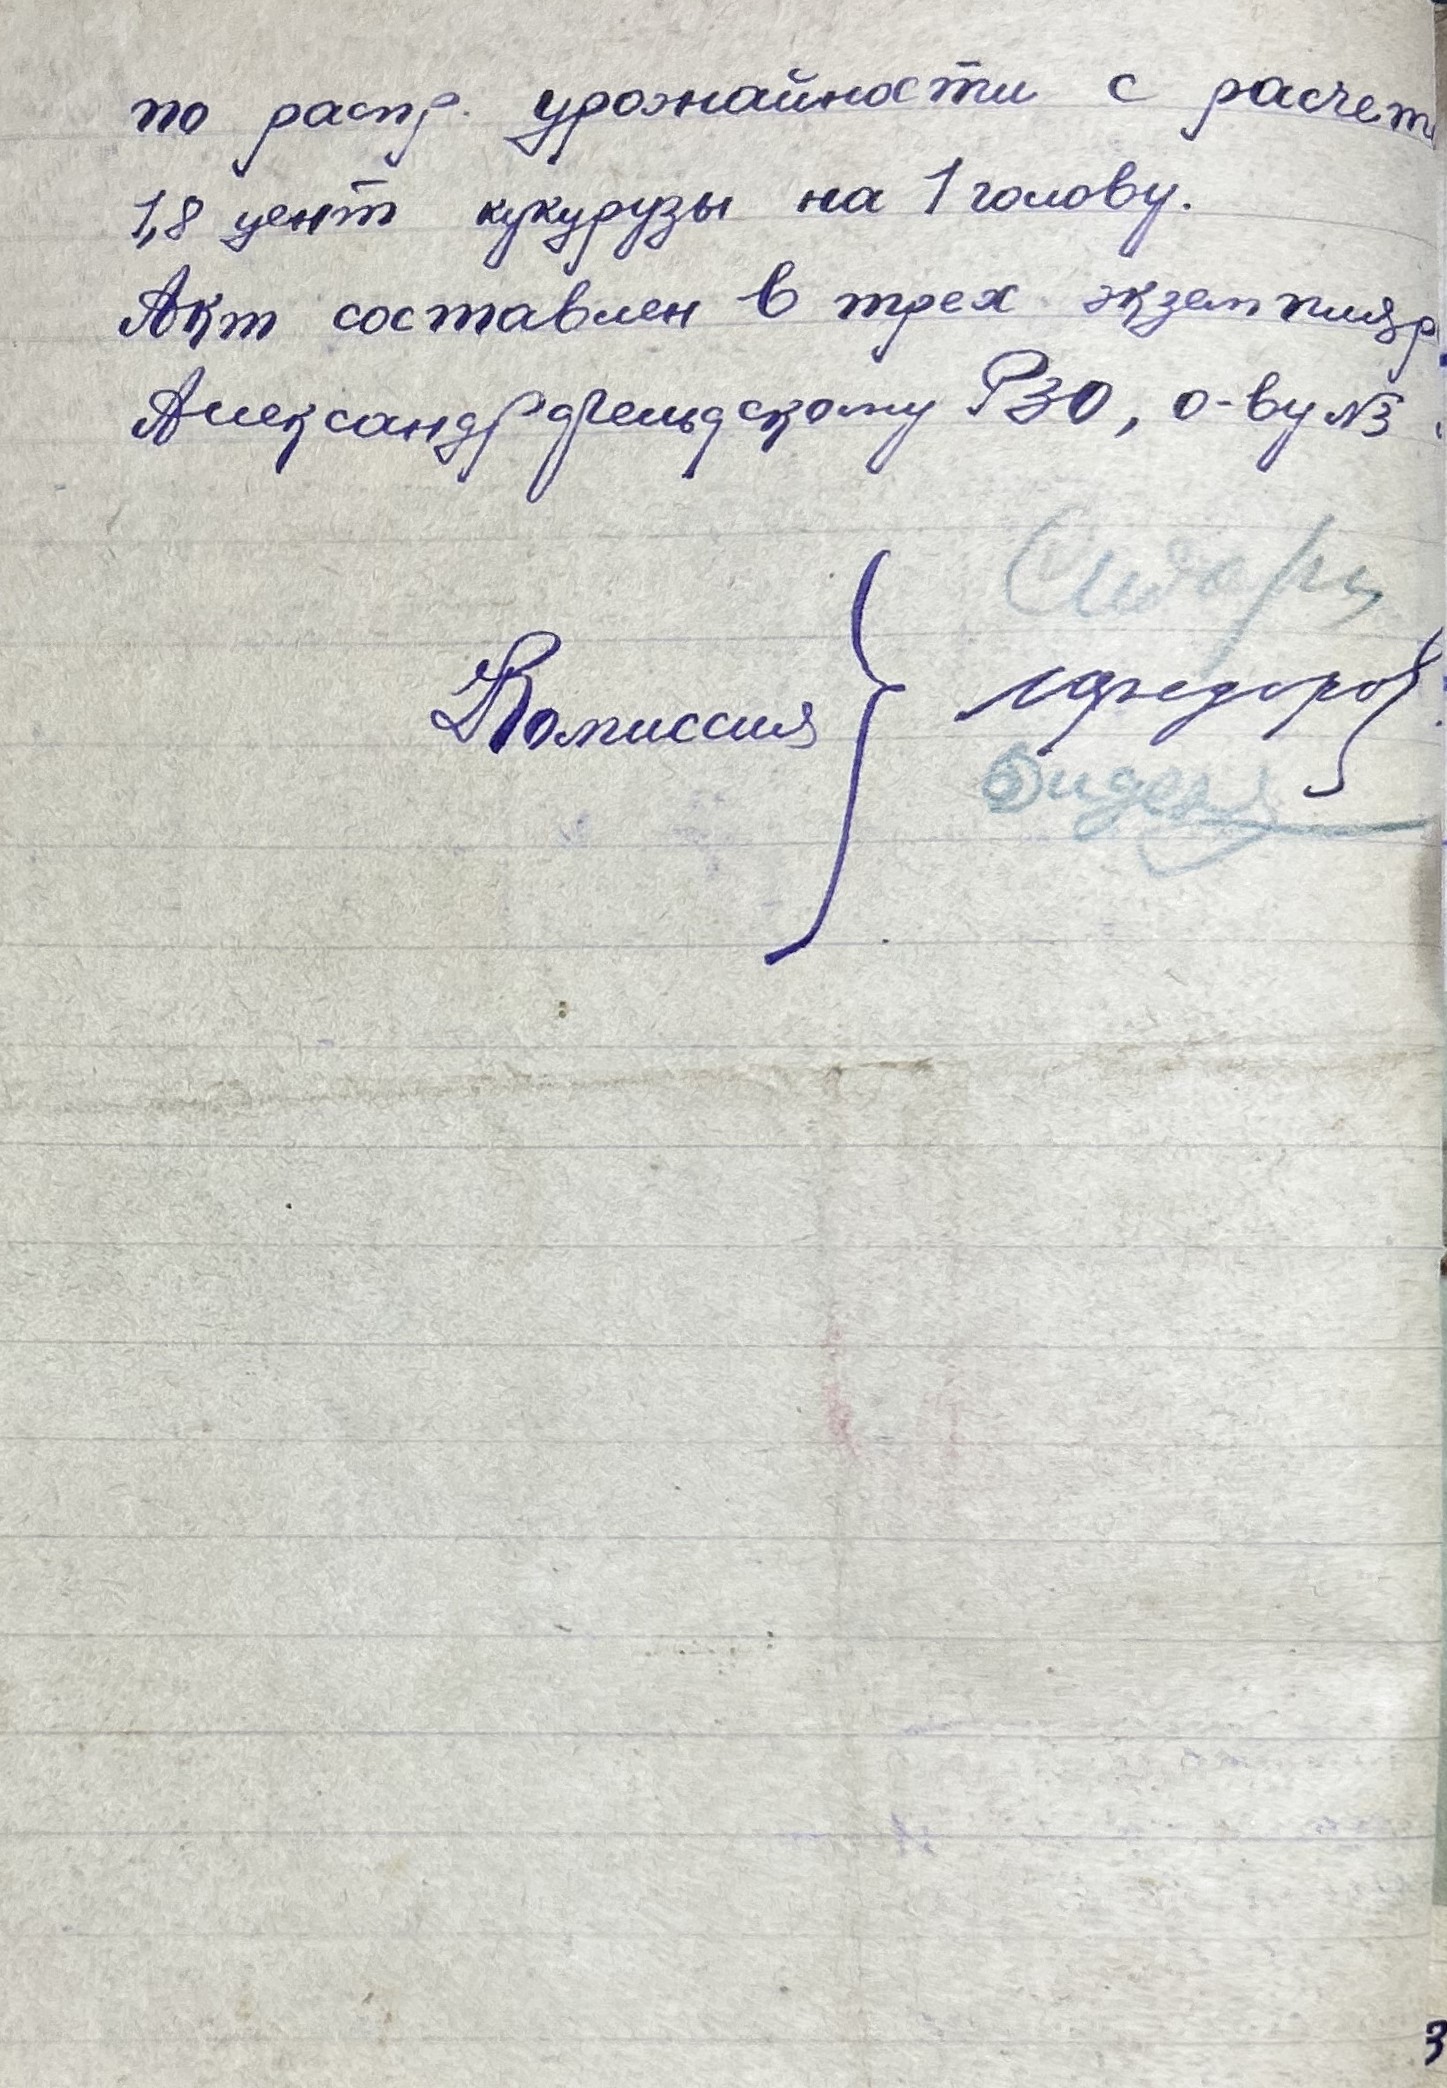 по распр. урожайности с расчет
1,8 цент кукурузы на 1 голову.
Акт составлен в трех экземпляр
Александрфельдскому РЗО, о-ву №3
Комиссия
Федоров
3